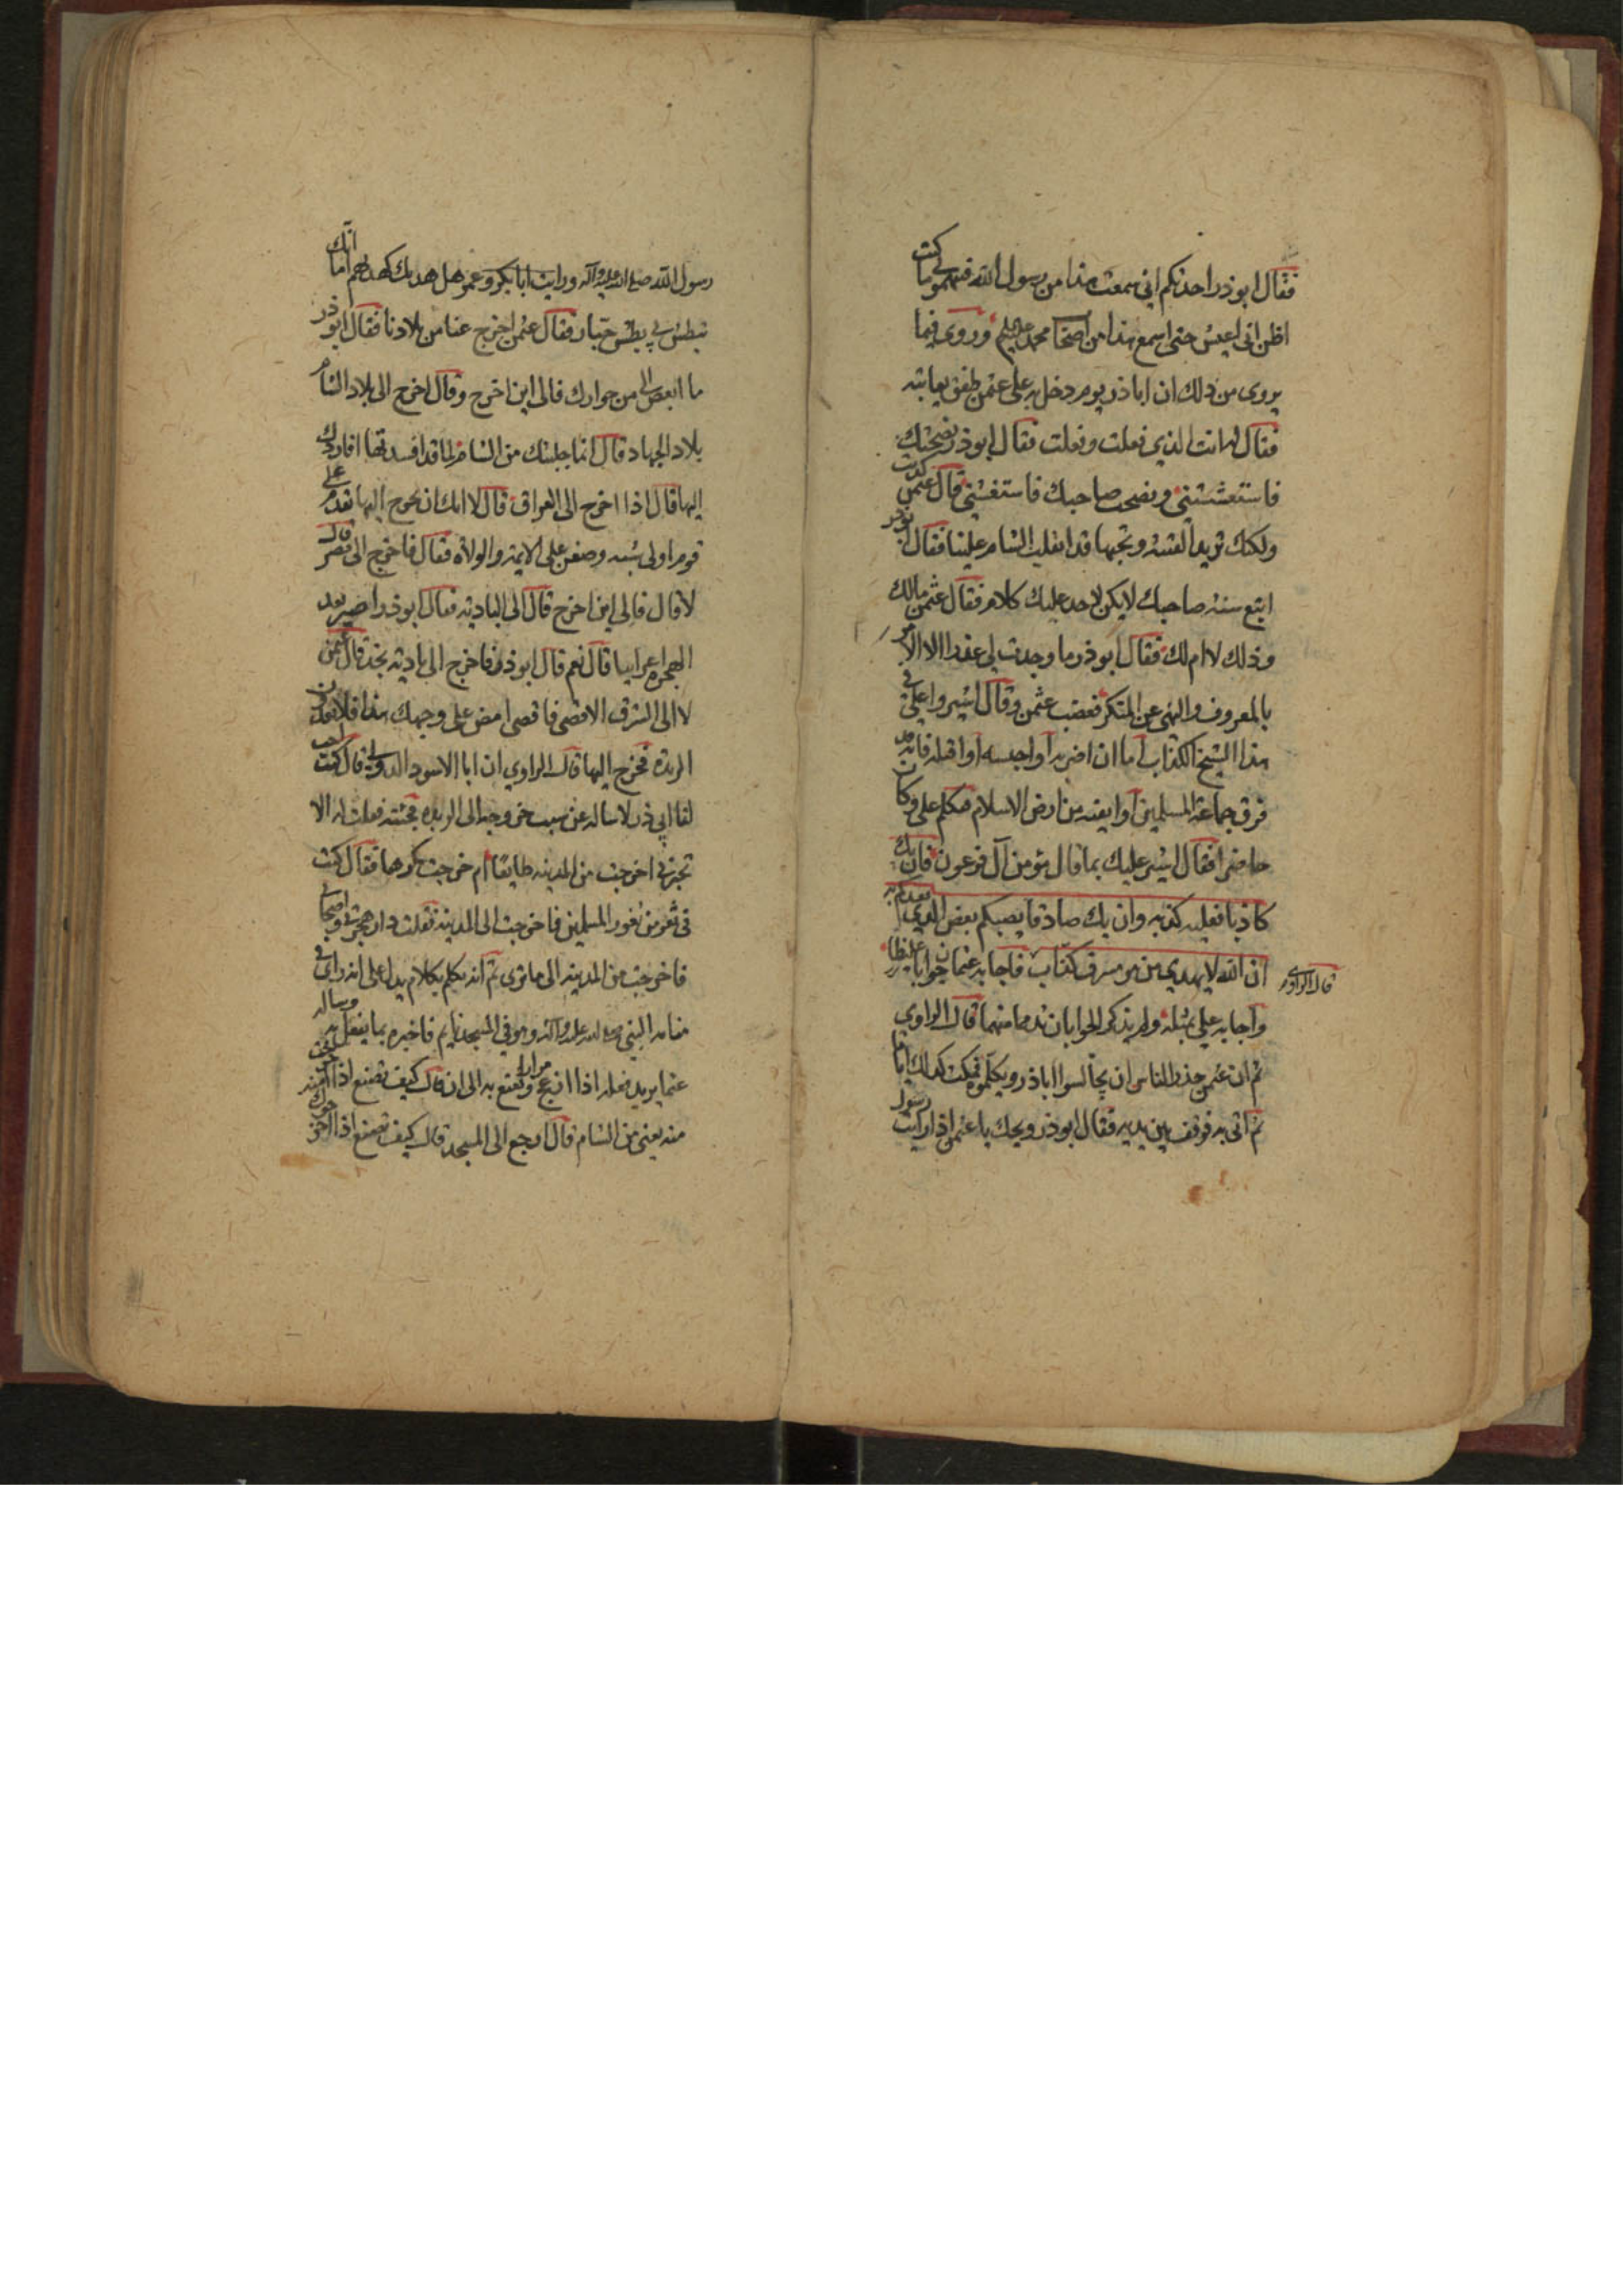 فقال ابوذر احدثكم اني سمعت هذا من رسول الله فتتهموني ما كنت
اظن اني اعيش حتى اسمع هذا من اصحاب محمد وروى فيما
يروى من ذلك ان اباذر يوم دخل به على عثمن طفق يعاتبه
فقال له انت الذي فعلت وفعلت فقال ابوذر نصحتك
فاستغششتني ونصحت صاحبك فاستغشني قال عثمن كذبت
ولكنك تريد الفتنه وتحبها قد انغلت الشام علينا فقال ابوذر
اتبع سنة صاحبك لا يكن لاحد عليك كلام فقال عثمن مالك
وذلك لا ام لك فقال ابوذر ما وجدت لي عذرا الا الامر
بالمعروف والنهي عن المنكر فغضب عثمن وقال اشيروا علي في
هذا الشيخ الكذاب اما ان اضربه او احبسه او اقتله فانه قد
فرق جماعة المسلمين او انفيه من ارض الاسلام فتكلم علي وكان
حاضرا فقال اشير عليك بما قال مؤمن آل فرعون فان يك
كاذبا فعليه كذبه وان يك صادقا يصبكم بعض الذي يعدكم به
ان الله لا يهدي من هو مسرف كذاب فاجابه عثمان جوابا غليظا
قال الراوي
واجابه علي بمثله ولم يذكر الجوابان تذمما منهما قال الراوي
ثم ان عثمن حذر الناس ان يجالسوا اباذر ويكلموه فمكث كذلك اياما
ثم اتى به فوقف بين يديه فقال ابوذر ويحك يا عثمن اذا رايت رسول
رسول الله صلى الله عليه وآله ورايت ابابكر وعمر هل هديك كهديهم اما انك
تبطش بي بطش جبار فقال عثمن اخرج عنا من بلادنا فقال ابوذر
ما ابغض الي من جوارك فالى اين اخرج وقال اخرج الى بلاد الشام
بلاد الجهاد قال انما جلبتك من الشام لما قد افسدتها افاردك
اليها قال اذا اخرج الى العراق قال لا انك ان تخرج اليها تقدم على
قوم اولي شبه وطعن على الايمة والولاة فقال فاخرج الى مصر قال
لا قال فالى اين اخرج قال الى البادية فقال ابوذر اصير بعد
الهجره اعرابيا قال نعم قال ابوذر فاخرج الى بادية نجد قال عثمن
لا الى الشرق الاقصى فاقصى امض على وجهك هذا فلا تعدون
الربذه فخرج اليها قال الراوي ان ابا الاسود الدولي قال كنت احب
لقا ابي ذر لاساله عن سبب خروجه الى الربذه فجئته فقلت له الا
تخبرني اخرجت من المدينه طايعا ام خرجت مكرها فقال كنت
في ثغر من ثغور المسلمين فاخرجت الى المدينة فقلت دار هجرتي واصحابي
فاخرجت من المدينه الى ما ترى ثم انه تكلم بكلام يدل على انه راى في
منامه النبي صلى الله عليه وآله وهو في المسجد نايم فاخبره بما يفعل به وساله
عما يريد فعله اذا انزعج الى ان قال كيف تصنع اذا اخرجت
منه يعني من الشام قال ارجع الى المسجد قال كيف تصنع اذا اخرجوك منه